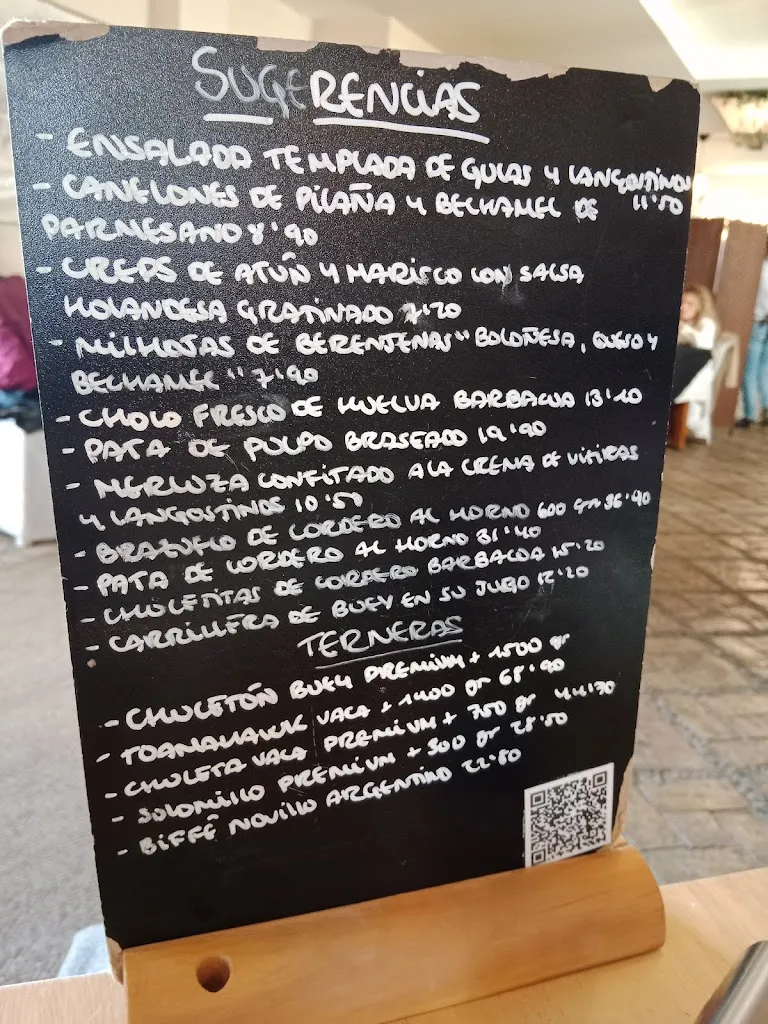 SUGERENCIAS
- ENSALADA TEMPLADA DE GULAS Y LANGOSTINOS
11'50
- CANELONES DE PICAÑA Y BECHAMEL DE
PARMESANO 8'90
- CREPS DE ATÚN Y MARISCO CON SALSA
HOLANDESA GRATINADO 7'20
- MILHOJAS DE BERENJENAS "BOLOÑESA, QUESO Y
BECHAMEL" 7'90
- CHOCO FRESCO DE HUELVA BARBACUA 13'10
- PATA DE PULPO BRASEADO 19'90
- MERLUZA CONFITADO A LA CREMA DE
Y LANGOSTINOS 10'50
- BRAZUELO DE CORDERO AL HORNO 600 gr 36'90
- PATA DE CORDERO AL HORNO 31'40
- CHULETITAS DE CORDERO BARBACOA 15'20
- CARRILLERA DE BUEY EN SU JUGO 12'20
TERNERAS
- CHULETÓN BUEY PREMIUM + 1500 gr
- TOAMAHAWK VACA + 1400 gr 68'90
- CHULETA VACA PREMIUM + 750 gr 44'70
- SOLOMILLO PREMIUM + 300 gr 28'50
- BIFFÉ NOVILLO ARGENTINO 22'80